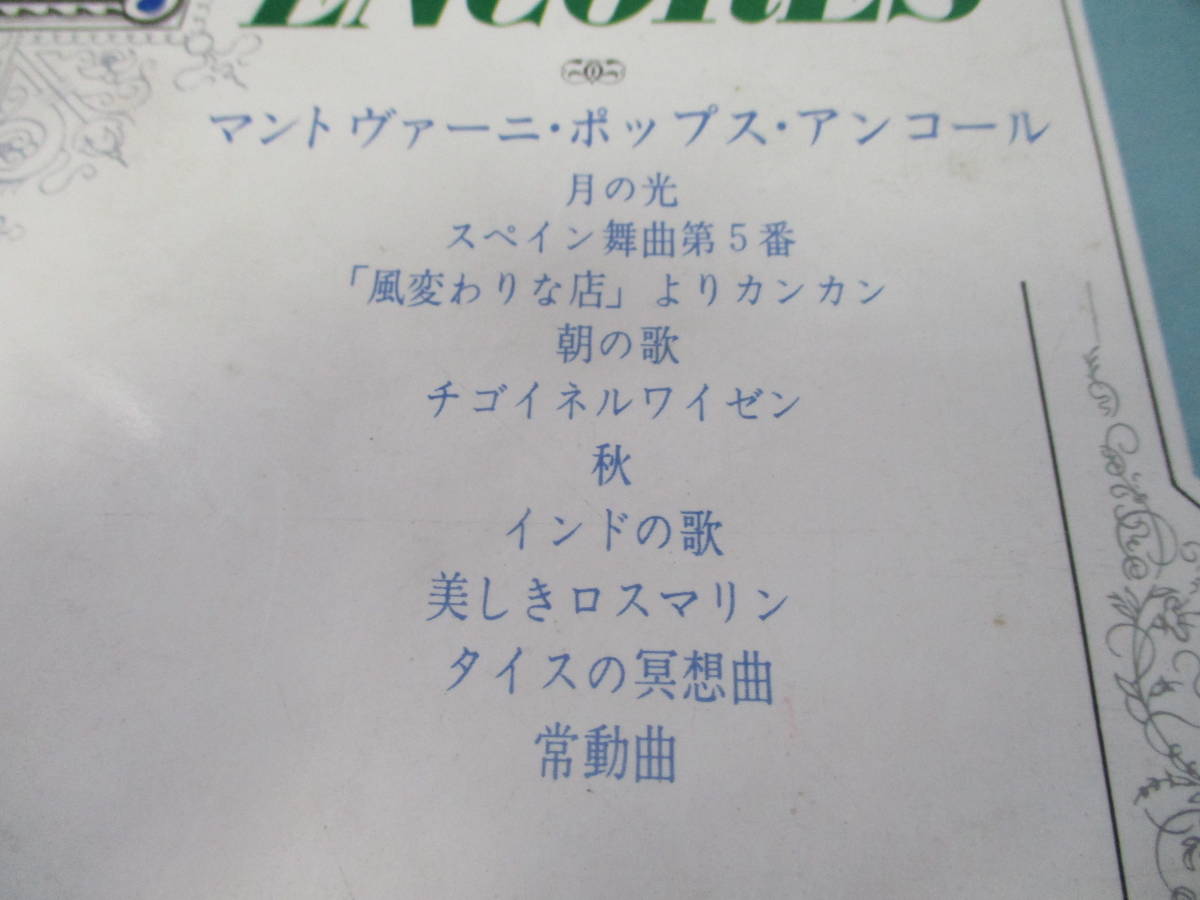 ENCORES
マントヴァーニ・ポップス・アンコール
月の光
スペイン舞曲第5番
「風変わりな店」よりカンカン
朝の歌
チゴイネルワイゼン
秋
インドの歌
美しきロスマリン
タイスの冥想曲
常動曲